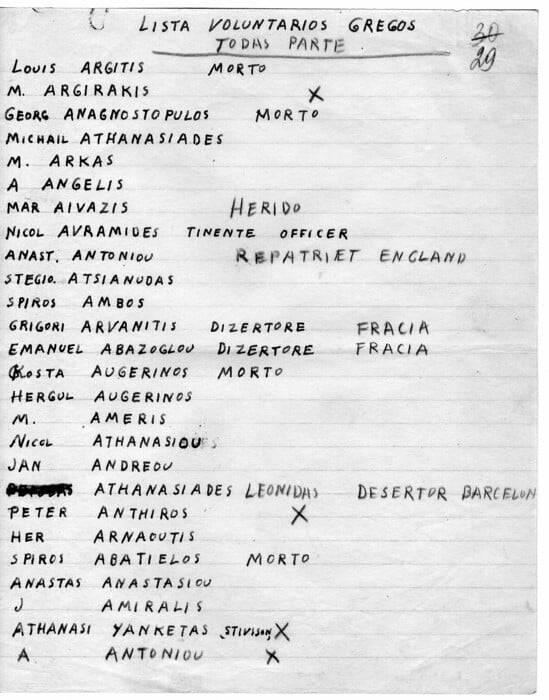 LISTA VOLUNTARIOS GREGOS
TODAS PARTE
30
29
LOUIS ARGITIS MORTO
M. ARGIRAKIS X
GEORG ANAGNOSTOPULOS MORTO
MICHAIL ATHANASIADES
M. ARKAS
A ANGELIS
MAR AIVAZIS HERIDO
NICOL AVRAMIDES TINENTE OFFICER
ANAST. ANTONIOU REPATRIET ENGLAND
STEGIO. ATSIANUDAS
SPIROS AMBOS
GRIGORI ARVANITIS DIZERTORE FRACIA
EMANUEL ABAZOGLOU DIZERTORE FRACIA
KOSTA AUGERINOS MORTO
HERGUL AUGERINOS
M. AMERIS
NICOL ATHANASIOUES
JAN ANDREOU
ATHANASIADES LEONIDAS DESERTOR BARCELON
PETER ANTHIROS X
HER ARNAOUTIS
SPIROS ABATIELOS MORTO
ANASTAS ANASTASIOU
J AMIRALIS
ATHANASI YANKETAS STIVISON X
A ANTONIOU X